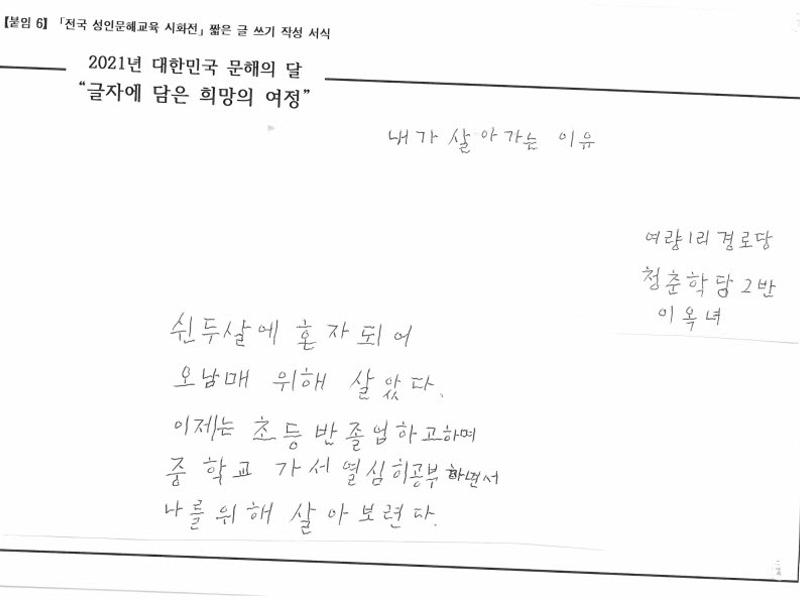 【붙임 6】 「전국 성인문해교육 시화전」 짧은 글 쓰기 작성 서식
2021년 대한민국 문해의 달
“글자에 담은 희망의 여정”
내가 살아가는 이유
여량1리 경로당
청춘학당 2반
이옥녀
쉰두살에 혼자되어
오남매 위해 살았다.
이제는 초등반졸업하고하며
중학교 가서 열심히공부하면서
나를위해 살아보련다.